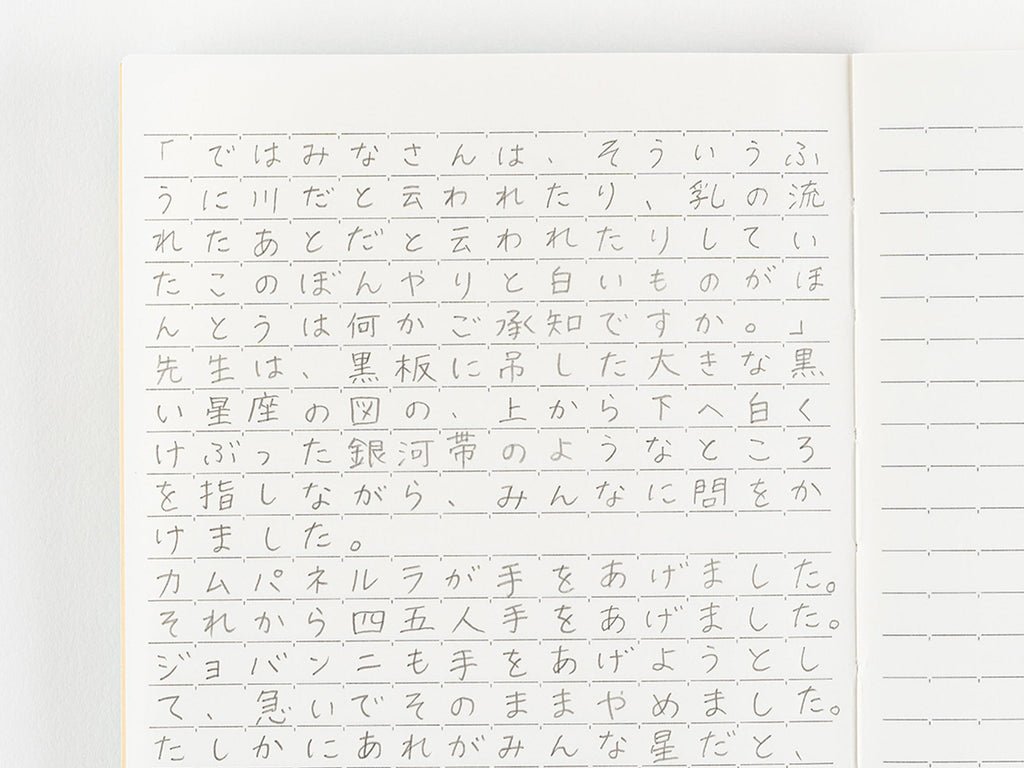 「ではみなさんは、そういうふ
うに川だと云われたり、乳の流
れたあとだと云われたりしてい
たこのぼんやりと白いものがほ
んとうは何かご承知ですか。」
先生は、黒板に吊した大きな黒
い星座の図の、上から下へ白く
けぶった銀河帯のようなところ
を指しながら、みんなに問をか
けました。
カムパネルラが手をあげました。
それから四五人手をあげました。
ジョバンニも手をあげようとし
て、急いでそのままやめました。
たしかにあれがみんな星だと、